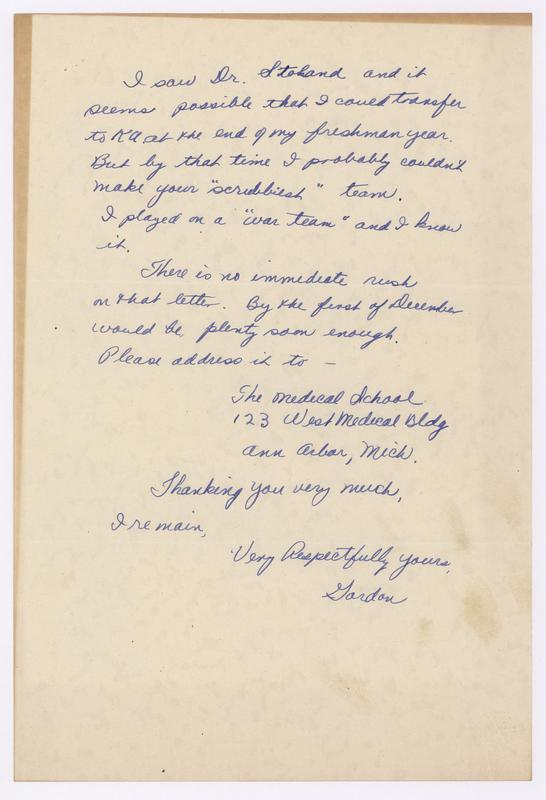 I saw Dr. and it
seems possible that I could transfer
to KU at the end of my freshman year.
But by that time I probably couldn't
make your "scrubbiest" team.
I played on a "war team" and I know
it.
There is no immediate rush
on that letter. By the first of December
would be plenty soon enough.
Please address it to —
The Medical School
123 West Medical Bldg
Ann Arbor, Mich.
Thanking you very much,
I remain,
Very Respectfully yours,
Gordon